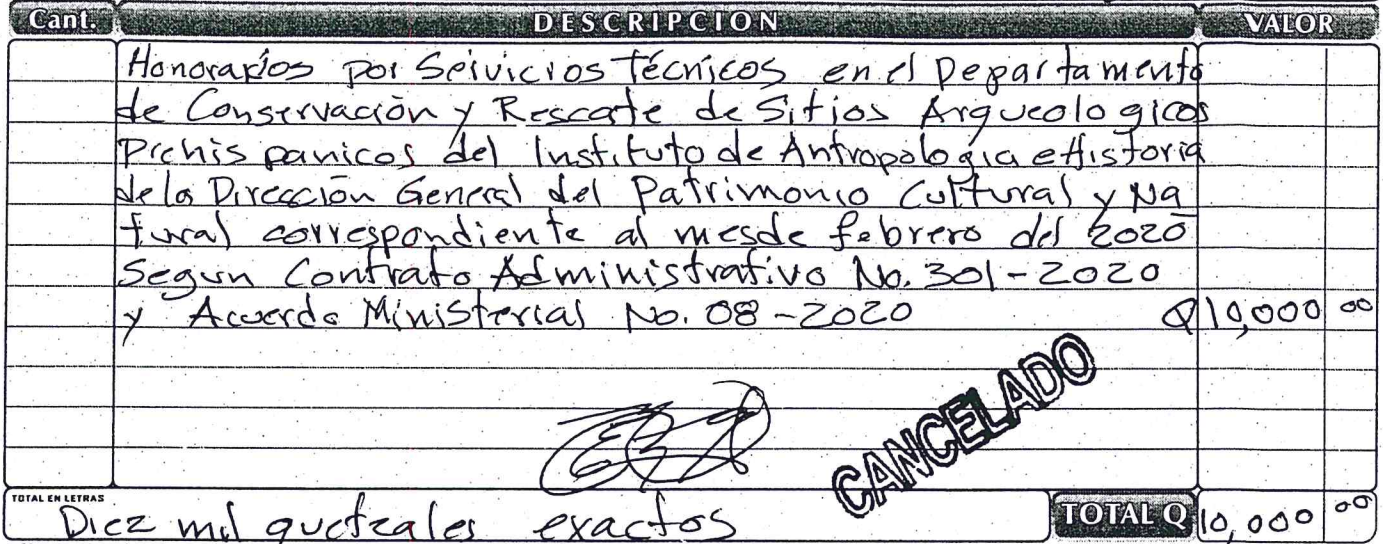 Cant. DESCRIPCION VALOR
Honorarios por Servicios Técnicos en el Departamento
de Conservación y Rescate de Sitios Arqueologicos
Prehispanicos del Instituto de Antropologia e Historia
de la Dirección General del Patrimonio Cultural y Na
tural correspondiente al mes de febrero del 2020
Segun Contrato Administrativo No. 301-2020
y Acuerdo Ministerial No. 08-2020 Q10,000 00
CANCELADO
TOTAL EN LETRAS
Diez mil quetzales exactos TOTAL Q 10,000 00